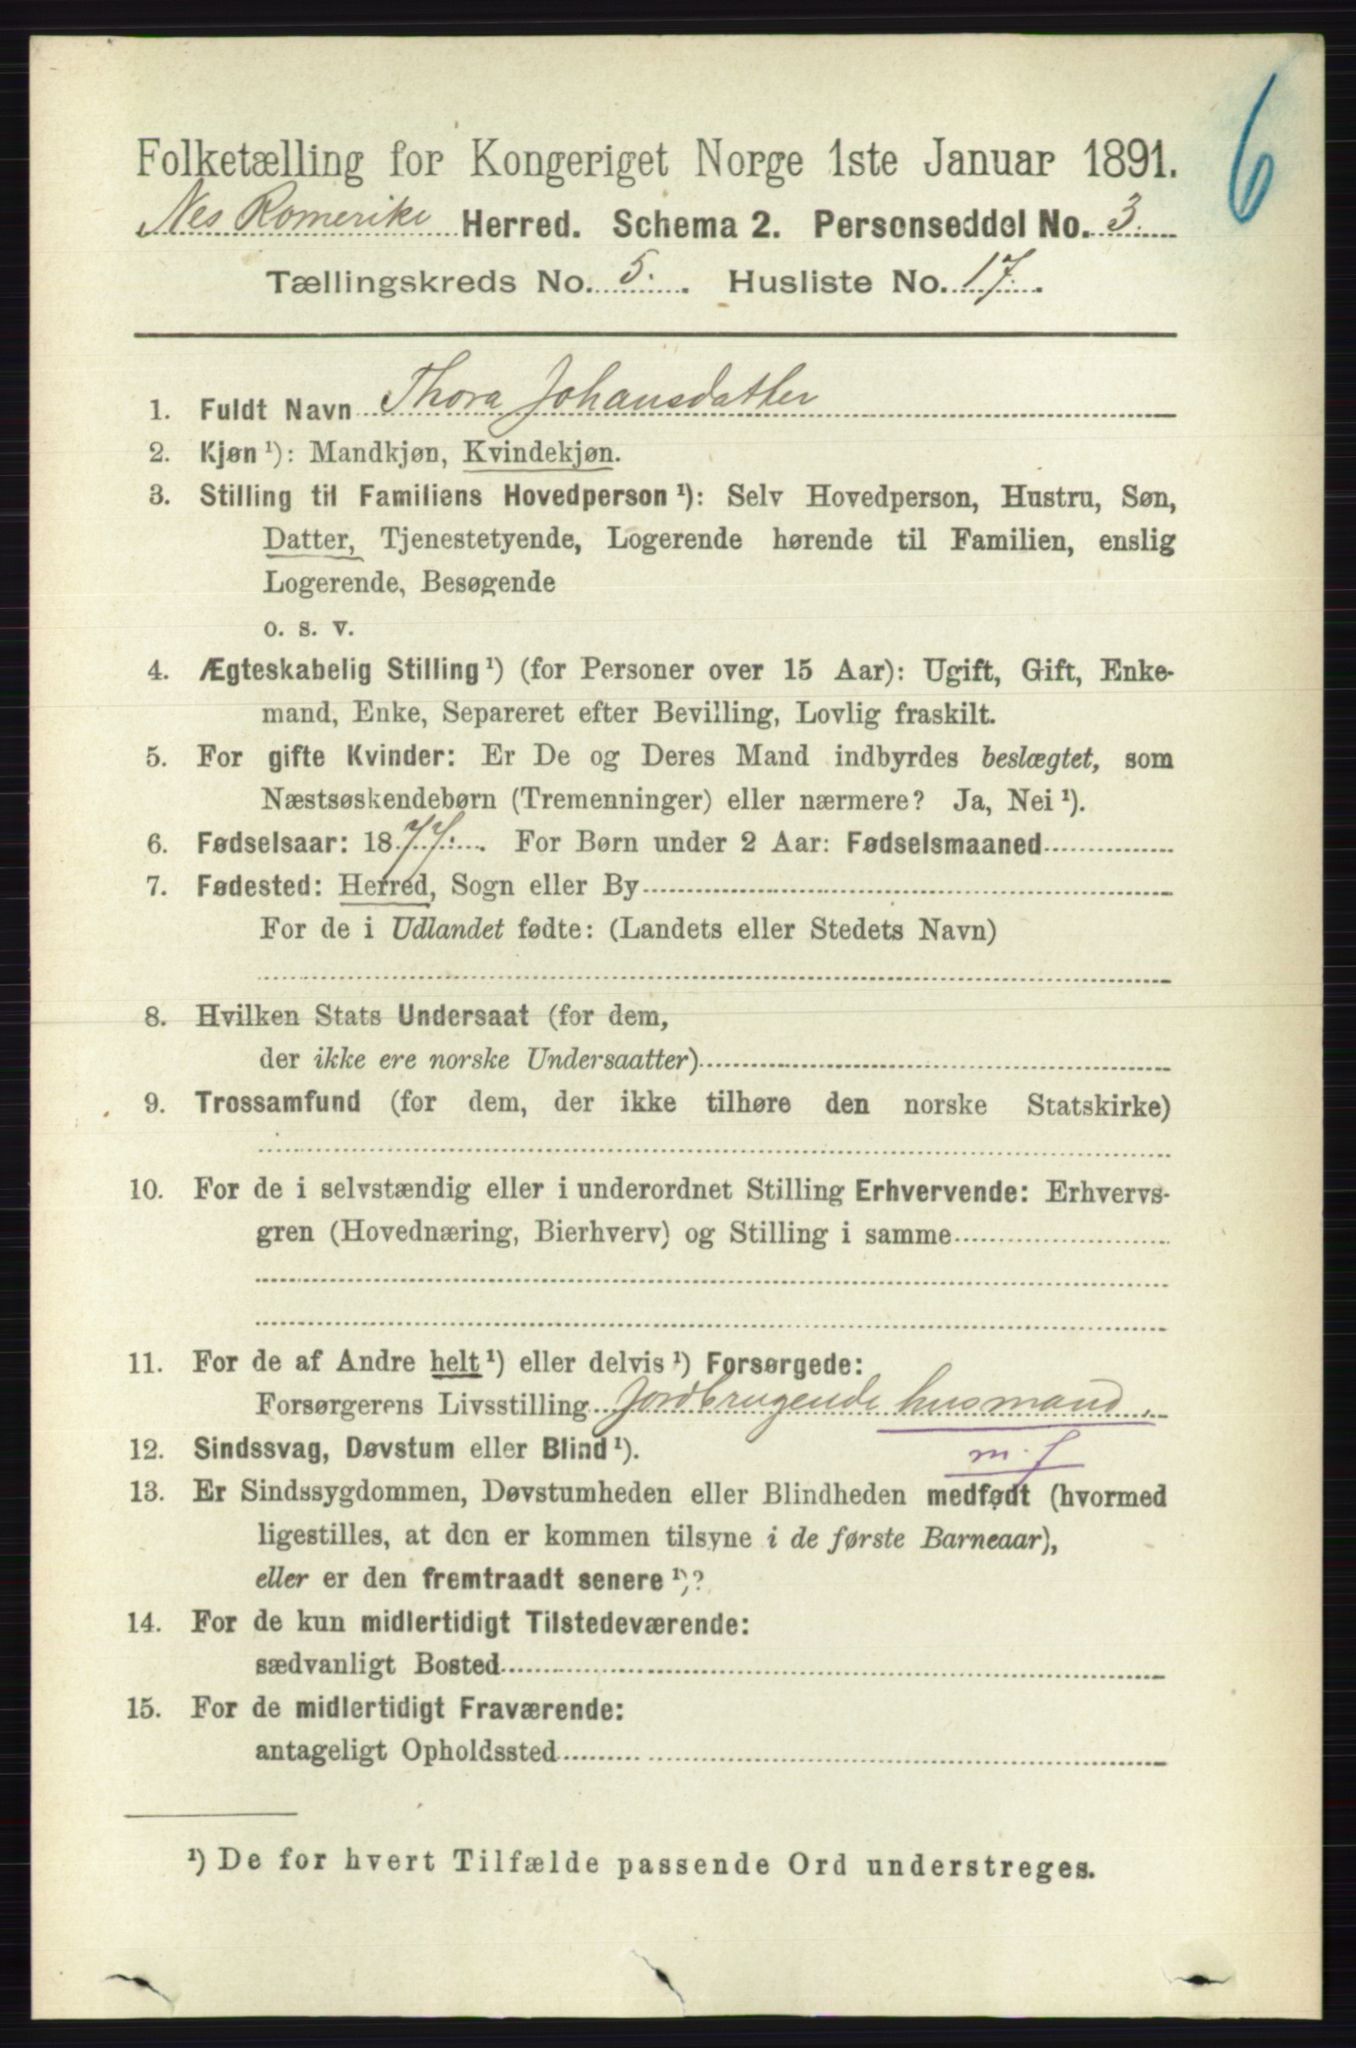 6
Folketælling for Kongeriget Norge 1ste Januar 1891.
Nes Romerike Herred. Schema 2. Personseddel No. 3.
Tællingskreds No. 5. Husliste No. 17.
1. Fuldt Navn Thora Johansdatter
2. Kjøn ¹): Mandkjøn, Kvindekjøn.
3. Stilling til Familiens Hovedperson ¹): Selv Hovedperson, Hustru, Søn,
Datter, Tjenestetyende, Logerende hørende til Familien, enslig
Logerende, Besøgende
o. s. v.
4. Ægteskabelig Stilling ¹) (for Personer over 15 Aar): Ugift, Gift, Enke-
mand, Enke, Separeret efter Bevilling, Lovlig fraskilt.
5. For gifte Kvinder: Er De og Deres Mand indbyrdes beslægtet, som
Næstsøskendebørn (Tremenninger) eller nærmere? Ja, Nei ¹).
6. Fødselsaar: 1877. For Børn under 2 Aar: Fødselsmaaned
7. Fødested: Herred, Sogn eller By
For de i Udlandet fødte: (Landets eller Stedets Navn)
8. Hvilken Stats Undersaat (for dem,
der ikke ere norske Undersaatter)
9. Trossamfund (for dem, der ikke tilhøre den norske Statskirke)
10. For de i selvstændig eller i underordnet Stilling Erhvervende: Erhvervs-
gren (Hovednæring, Bierhverv) og Stilling i samme
11. For de af Andre helt ¹) eller delvis ¹) Forsørgede:
Forsørgerens Livsstilling Jordbrugende husmand.
m. f
12. Sindssvag, Døvstum eller Blind ¹).
13. Er Sindssygdommen, Døvstumheden eller Blindheden medfødt (hvormed
ligestilles, at den er kommen tilsyne i de første Barneaar),
eller er den fremtraadt senere ¹)?
14. For de kun midlertidigt Tilstedeværende:
sædvanligt Bosted
15. For de midlertidigt Fraværende:
antageligt Opholdssted
¹) De for hvert Tilfælde passende Ord understreges.